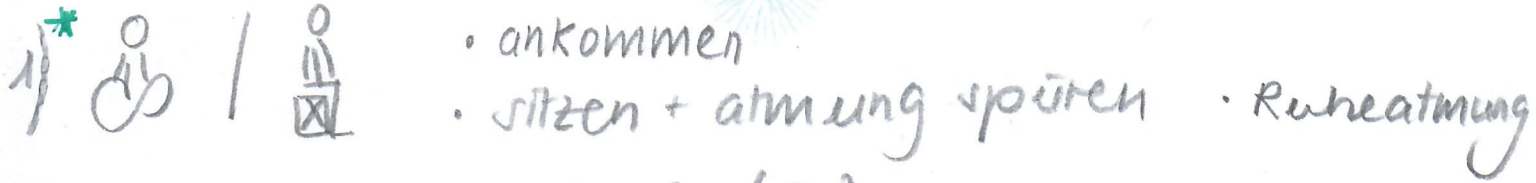 1)
• ankommen
• sitzen + atmung spüren • Ruheatmung